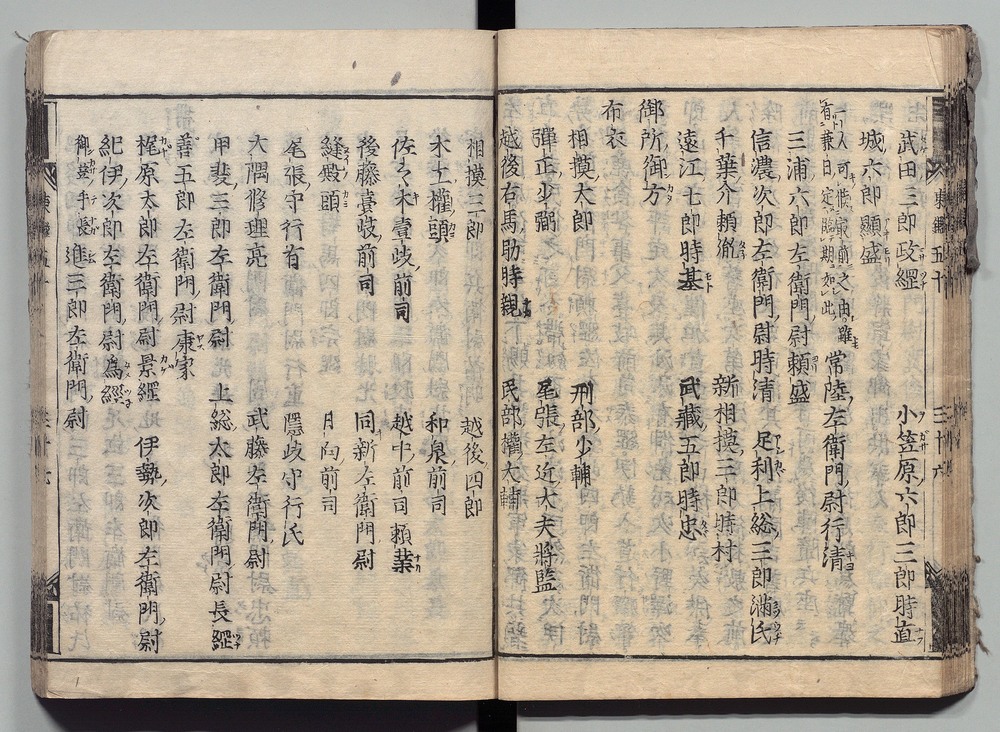 武田三郎政經 小笠原六郎三郎時直
城六郎顯盛
一人可供家前之由雖 常陸左衛門尉行清
首兼日定臨期如出
三浦六郎左衛門尉頼盛
信濃次郎左衛門尉時清 足利上総三郎満氏
千葉介頼胤 新相摸三郎時村
遠江七郎時基 武藏五郎時忠
御所御方
布衣
相摸太郎 刑部少輔
彈正少弼 尾張左近大夫將監
越後右馬助時親 民部權大輔
相摸三郎 越後四郎
木工權頭 和泉前司
佐々木壹岐前司 越中前司頼業
後藤壹岐前司 同新左衛門尉
縫殿頭 日向前司
尾張守行有 隱岐守行氏
大隅修理亮 武藤左衛門尉
甲斐三郎左衛門尉 上総太郎左衛門尉長經
善五郎左衛門尉康家
梶原太郎左衛門尉景經 伊勢次郎左衛門尉
紀伊次郎左衛門尉爲經
御簾手長 進三郎左衛門尉
東鑑五十 三十六